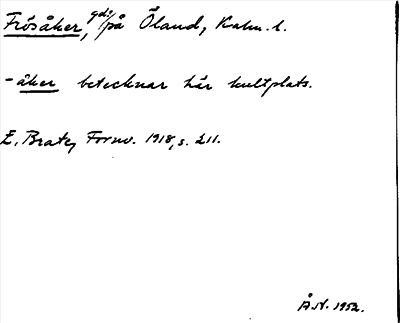 Frösåker, gd. på Öland, Kalm. l.
-åker betecknar här kultplats.
E. Brate, Fornv. 1918, s. 211.
Å.N. 1952.